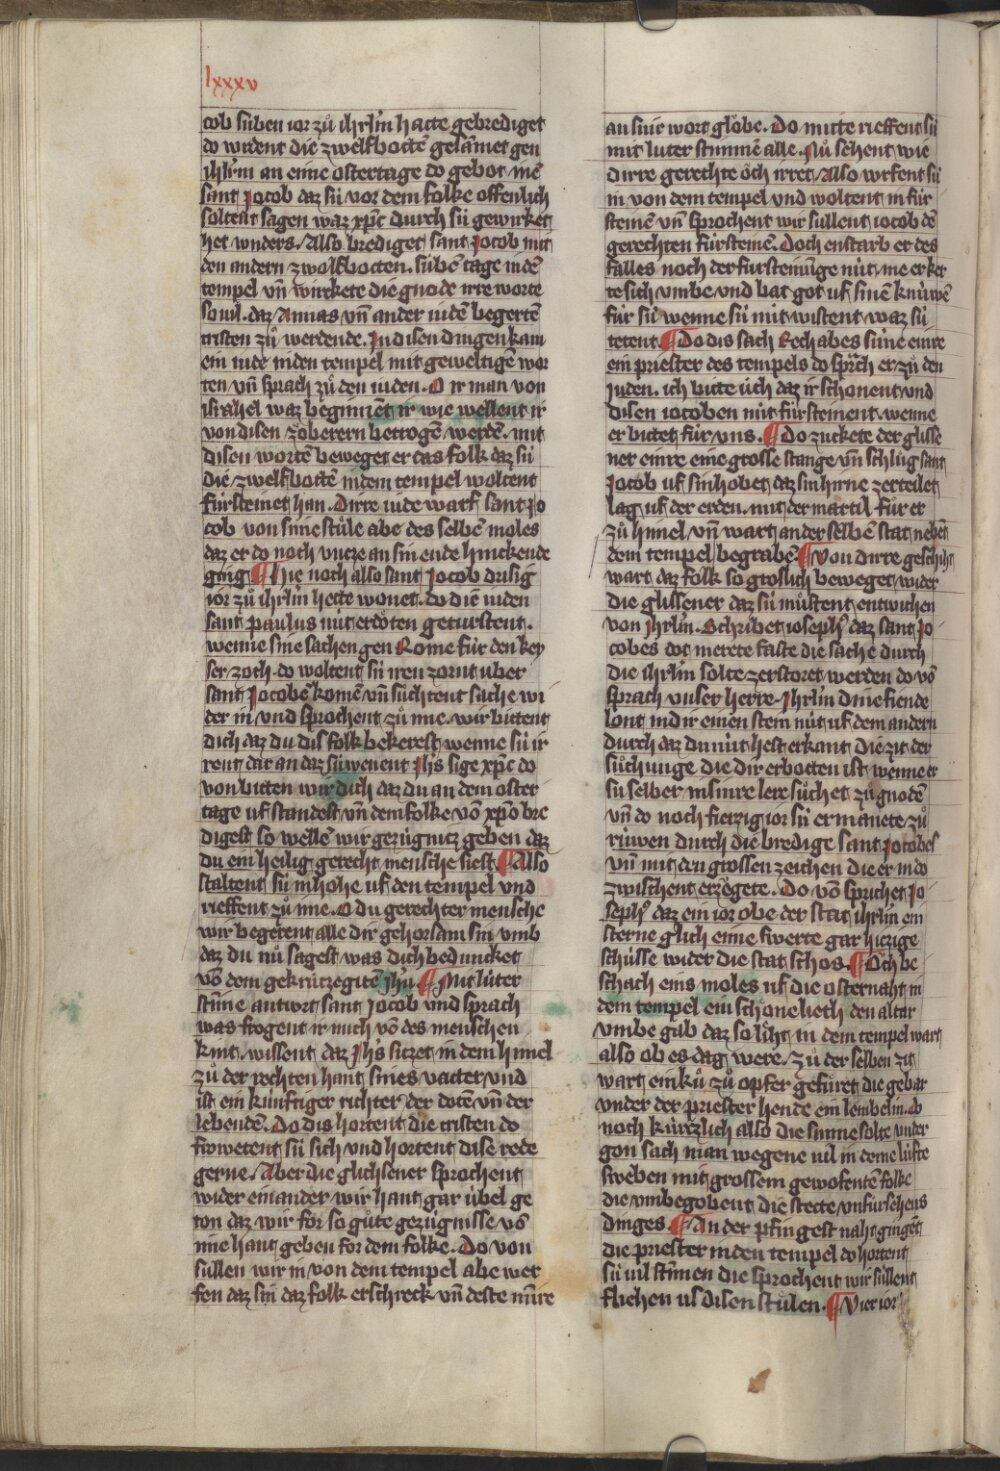 lxxxv
cob suben ior zuͦ ihrl̄m hatte gebrediget
do wrdent die zwelfbottē gesamet gen
ihrl̄m an eime ostertage do gebot ime
sant Jocob daz sü vor dem folke offenlich
soltent sagen waz xp̄c durch sü gewirket
het wnders. Also brediget sant Jocob mit
den andern zwolfbotten. subē tage in dē
tempel vn̄ wirckete die gnode irre worte
so vil. daz Annas vn̄ ander iudē begertē
cristen zuͦ werdende. In disen dingen kam
ein iude in den tempel mit geweltigen wor
ten vn̄ sprach zuͦ den iuden. O ir man von
israhel waz beginnēt ir wie wellent ir
von disen zoͤberern betrogē werdē. mit
disen wortē beweget er das folk daz sü
die zwelfbottē in dem tempel woltent
fürsteinet han. Dirre iude warf sant Jo
cob von sime stuͦle abe des selbē moles
daz er do noch vntze an sin ende hinckende
ging ¶ Hie noch also sant Jocob drisig
ior zuͦ ihrl̄m hette wonet. do die iuden
sant paulus nüt ertoͤten geturstent.
wenne sine sachen gen Rome für den key
ser zoch. do woltent sü iren zorn uber
sant Jocobē komē vn̄ suͦchtent sache wi
der in vnd sprochent zuͦ ime. wir bittent
dich daz du dis folk bekerest wenne sü ir
rent dar an daz sü wenent Jh̄s sige xp̄c do
von bitten wir dich daz du an dem oster
tage uf standest vn̄ dem folke vō xp̄o bre
digest so wellē wir gezügnisz geben daz
du ein heilig gerecht mensche siest. ¶ Also
staltent sü in hohe uf den tempel vnd
rieffent zuͦ ime. O du gerechter mensche
wir begerent alle dir gehorsam sin vmb
daz du nuͦ sagest was dich bedüncket
vō dem gekrützegitē Jhū ¶ Mit luter
stīme antwrt sant Jocob vnd sprach
was frogent ir mich vō des menschen
kint. wissent daz Jh̄s sitzet in dem himel
zuͦ der rechten hant sines vatter vnd
ist ein künftiger richter der dotē vn̄ der
lebendē. Do dis hortent die cristen do
froͤwetent sü sich vnd hortent dise rede
gerne. Aber die glichsener sprochent
wider einander wir hant gar übel ge
ton daz wir for so guͦte gezügnisse vō
ime hant geben for dem folke. Do von
sullen wir in von dem tempel abe wer
fen daz sin daz folk erschreck vn̄ deste mīre
an sine wort gloͤbe. Do mitte rieffent sü
mit luter stimme alle. Nuͦ sehent wie
dirre gerechte oͤch irret. Also wrfent sü
in von dem tempel vnd woltent in für
steinē vn̄ sprochent wir sullent iocob dē
gerechten fürsteinē. Doch enstarb er des
falles noch der fursteinūge nüt. me er ker
te sich vmbe vnd bat got uf sinē knüwē
für sü wenne sü nüt wistent waz sü
tetent. ¶ Do dis sach Rechabes süne eine
ein priester des tempels do sprach er zuͦ den
Juden. ich bitte uͥch daz ir schonent vnd
disen iocoben nüt fürsteinent. wenne
er bittet für vns. ¶ Do zuckete der glisse
ner eine eine grosse stange vn̄ schluͦg sant
Jocob uf sin hobet daz sin hirne zerteilet
lag uf der erden. mit der martil fuͦr er
zuͦ himel vn̄ wart an der selbē stat nebē
dem tempel begrabē. ¶ Von dirre geschiht
wart daz folk so groslich beweget wider
die glissener daz sü muͦstent entwichen
von ihrl̄m. Schribet ioseph̄ daz sant Jo
cobes dot merete faste die sache durch
die ihrl̄m solte zerstoret werden do vō
sprach vnser herre. Jhrl̄m dine fiende
lont in dir einen stein nüt uf dem andern
durch daz du nüt hest erkant die zit der
suͦchunge die dir erbotten ist wenne er
sü selber in sinre lere suͦchet zuͦ gnodē
vn̄ do noch fierzig ior sü ermanete zuͦ
rüwen durch die bredige sant Jocobes
vn̄ mit den grossen zeichen die er in do
zwischent erzoͤgete. Do vō sprichet Jo
seph̄ daz ein ior obe der stat ihrl̄m ein
sterne glich eime swerte gar hitzige
schüsse wider die stat schos. ¶ Och be
schach eins moles uf die osternaht in
dem tempel ein schoͤne lieth den altar
vmbe gab daz so lieht in dem tempel wart
also ob es dag were. zuͦ der selben zit
wart ein kuͦ zuͦ opfer gefuͤret die gebar
vnder der priester hende ein lembelin. do
noch kürtzlich also die sunne solte vnder
gon sach man wegene vil in deme lufte
sweben mit grossem gewofentē folke
die vmbegobent die stette vnfürsehens
dinges. ¶ An der pfingest naht gingēt
die priester in den tempel do hortent
sü vil stīmen die sprochent wir süllent
fliehen us disen stuͦlen. ¶ Vier ior